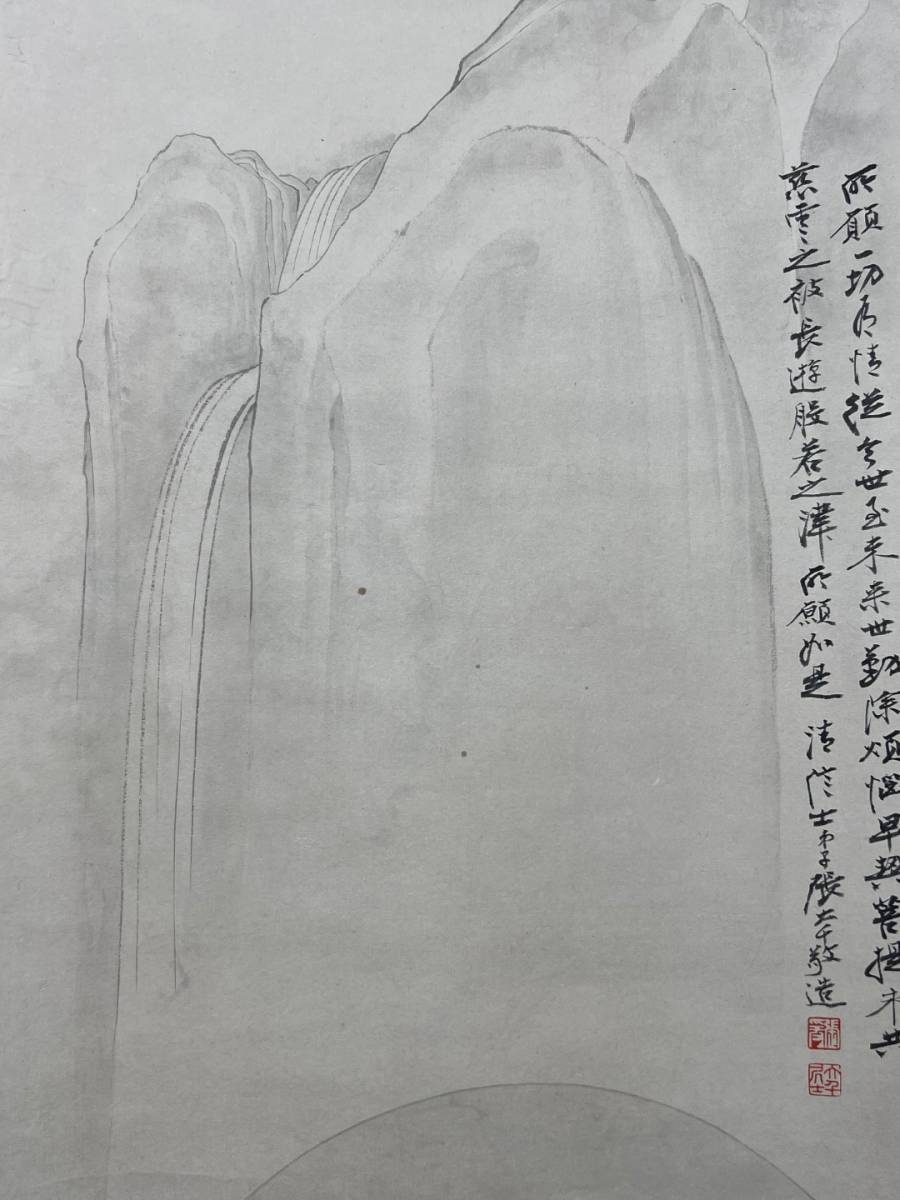 所願一切有情從今世至未来世勤除煩惱早契菩提永共
慈雲之被長遊般若之津所願如是 清信士弟子張大千敬造
張爰
大千居士